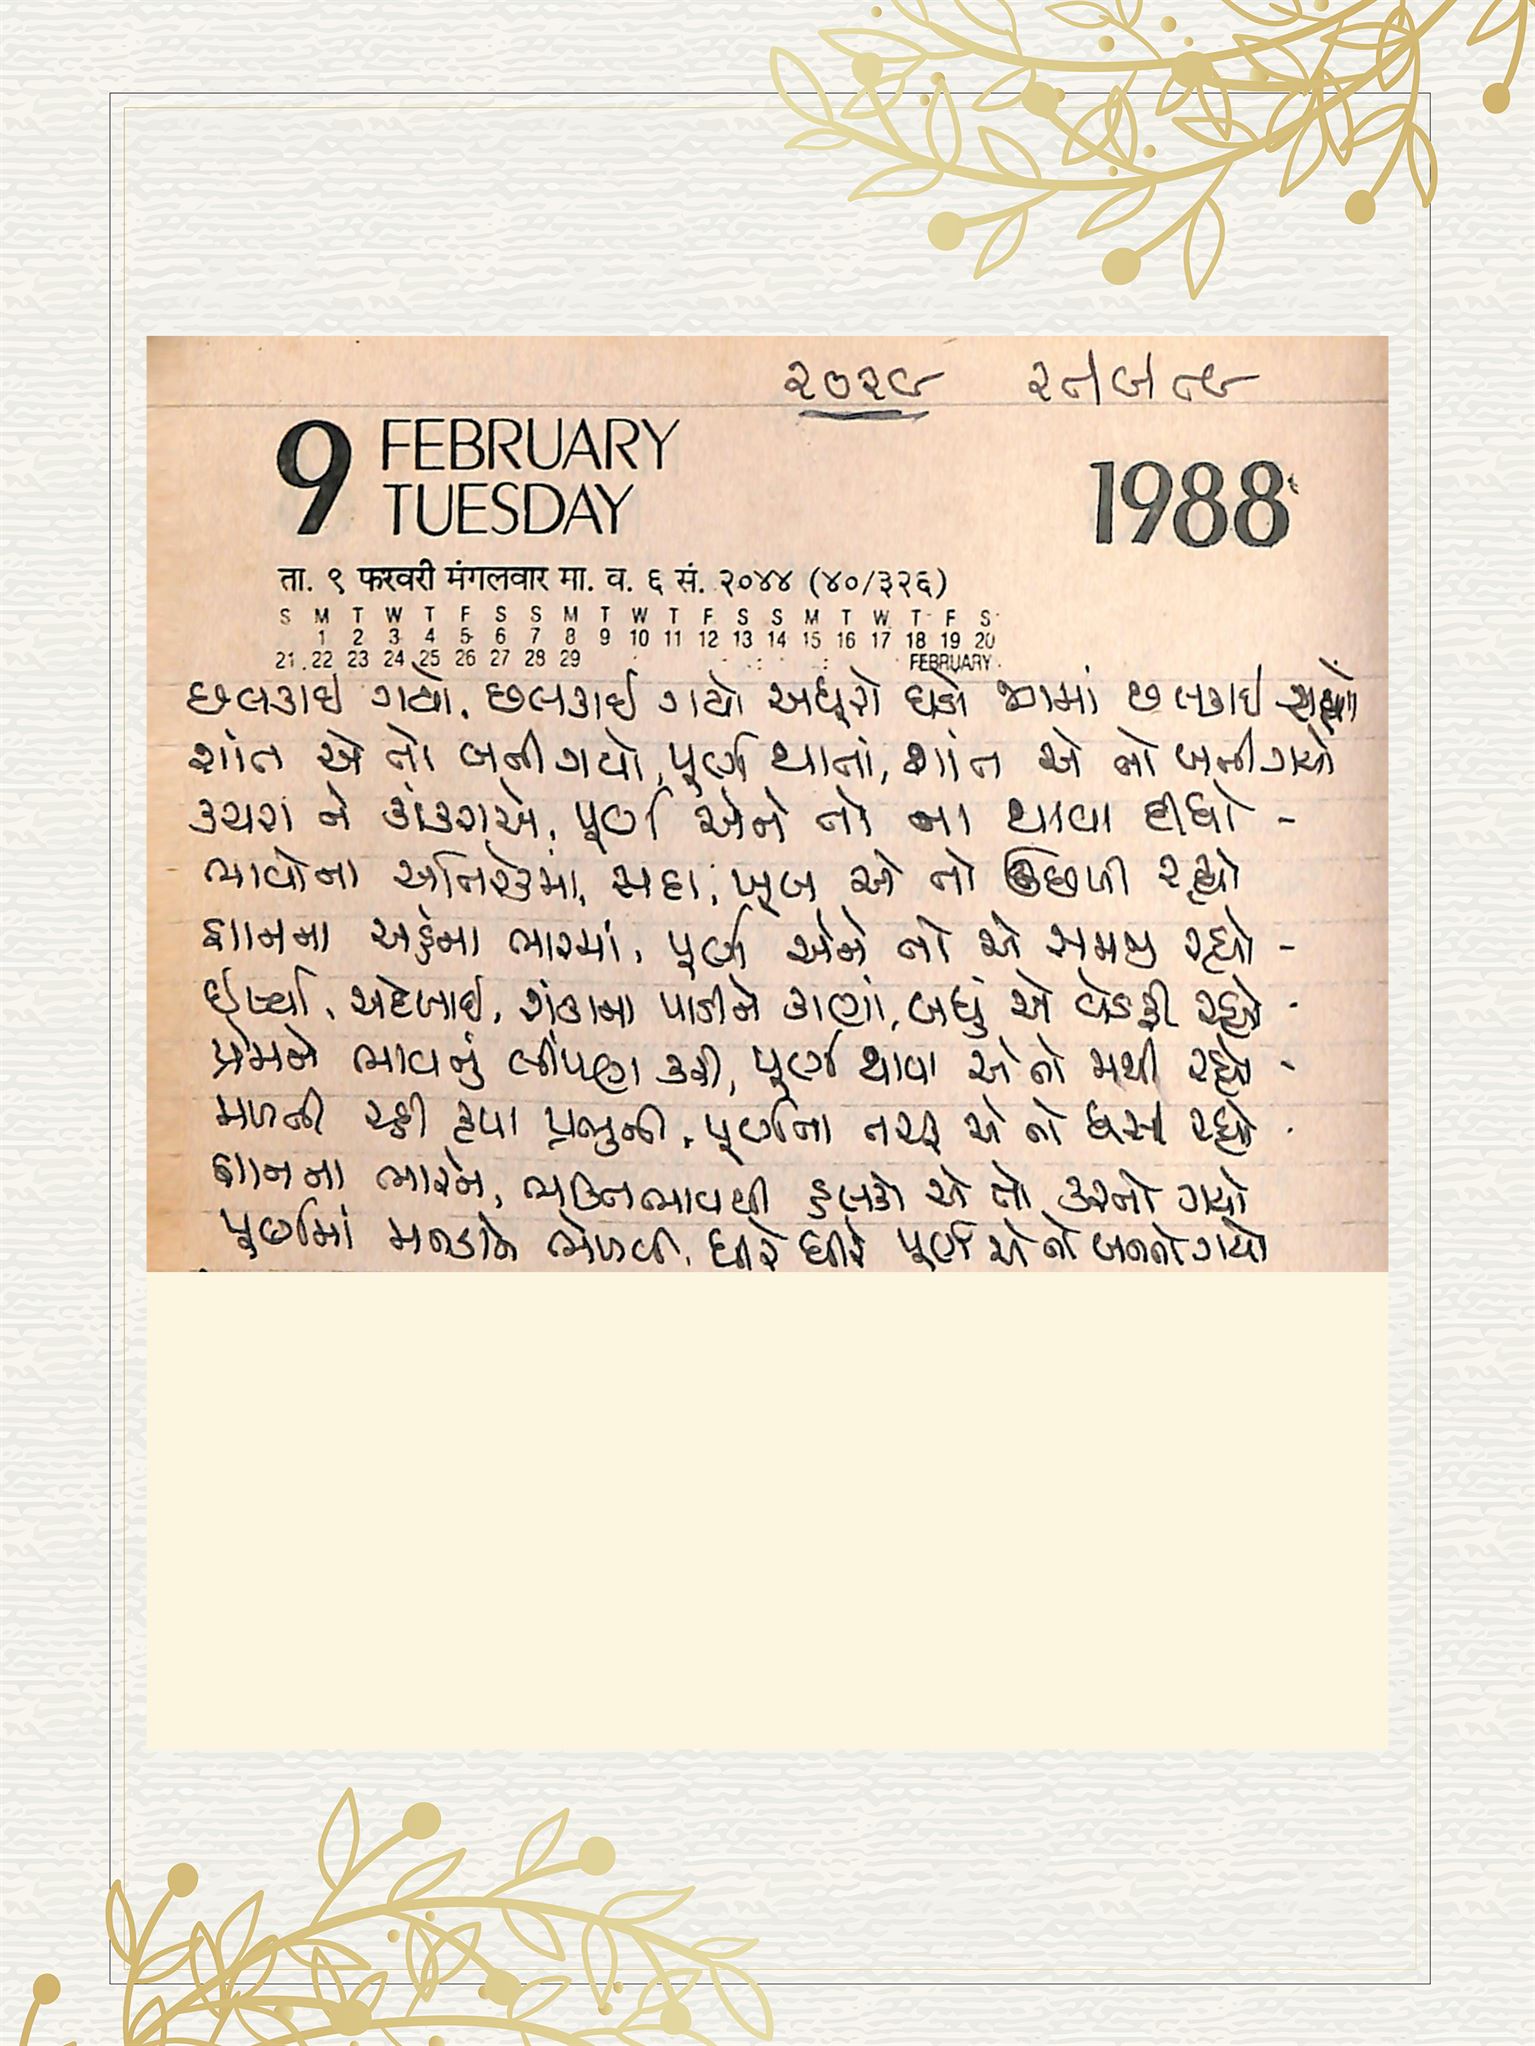 ૨૦૨૯
9 FEBRUARY
TUESDAY
1988
ता. ९ फरवरी मंगलवार मा. व. ६ सं. २०४४ (४०/३२६)
S M T W T F S S M T W T F S S M T W T F S
1 2 3 4 5 6 7 8 9 10 11 12 13 14 15 16 17 18 19 20
21 22 23 24 25 26 27 28 29 FEBRUARY
છલકાઈ ગયો, છલકાઈ ગયો અધૂરો ઘડો જગમાં છલકાઈ ગયો
શાંત એ તો બની ગયો, પૂર્ણ થાતાં, શાંત એ તો બની ગયો
કચરા ને કાંકરાએ, પૂર્ણ એને તો ના થાવા દીધો -
ભાવોના અતિરેકમાં, સદા, ખૂબ એ તો ઊછળી રહ્યો
જ્ઞાનના અહંના ભારમાં, પૂર્ણ એને તો એ સમજી રહ્યો -
ઈર્ષ્યા, અદેખાઈ, શંકાના પાડીને કાણાં, બધું એ વેડફી રહ્યો -
પ્રેમને ભાવનું લીંપણ કરી, પૂર્ણ થાવા એ તો મથી રહ્યો -
મળતી રહી કૃપા પ્રભુની, પૂર્ણતા તરફ એ તો ધસી રહ્યો -
જ્ઞાનના ભારને, ભક્તિભાવથી હલકો એ તો કરતો ગયો
પૂર્ણમાં મનડાંને ભેળવી, ધીરે ધીરે પૂર્ણ એ તો બનતો ગયો